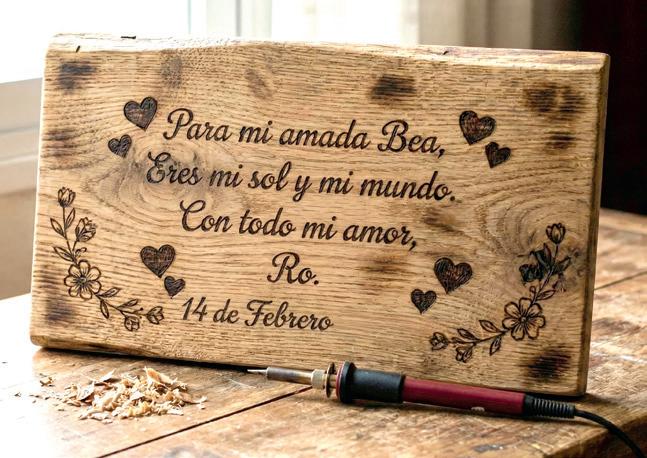 Para mi amada Bea,
Eres mi sol y mi mundo.
Con todo mi amor,
Ro.
14 de Febrero